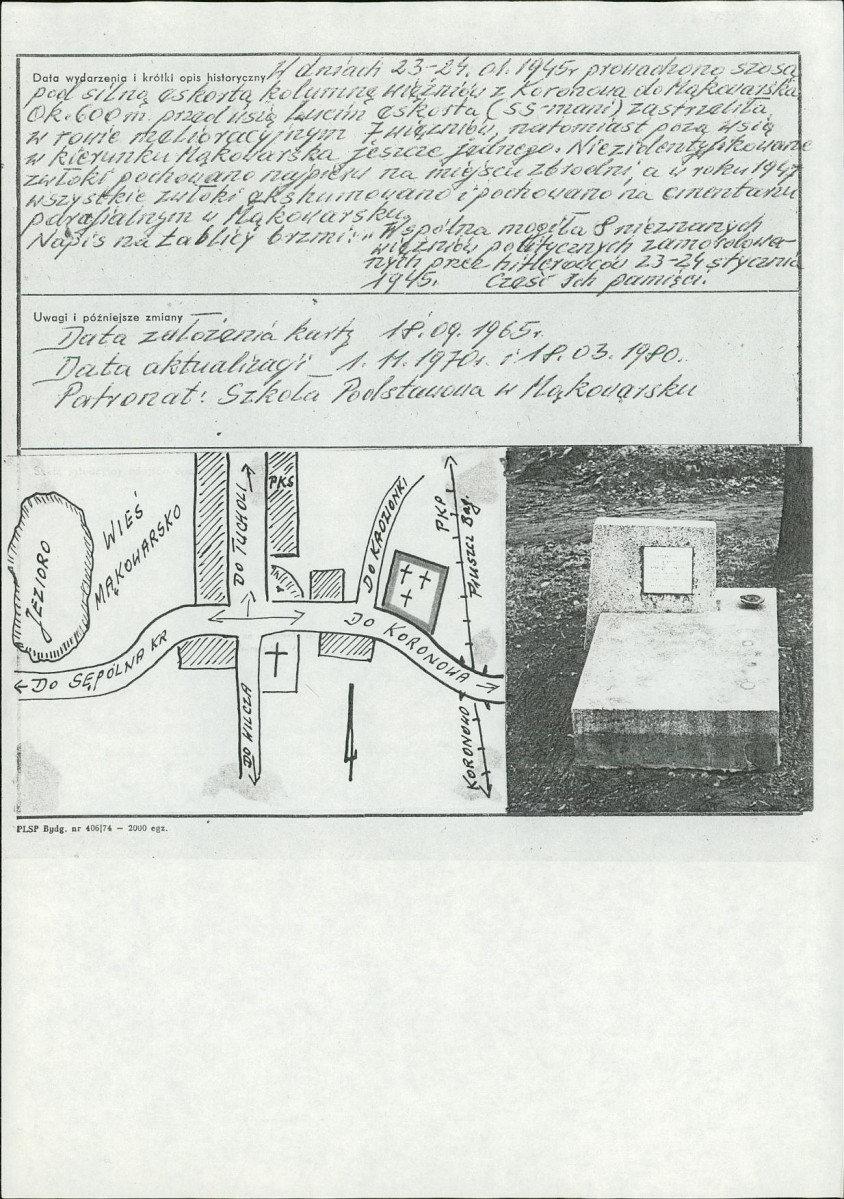 Data wydarzenia i krótki opis historyczny W dniach 23-24.01.1945r prowadzono szosą
pod silną eskortą kolumnę więźniów z Koronowa do Mąkowarska.
Ok. 600 m. przed wsią Lucim eskorta (SS-mani) zastrzeliła
w rowie melioracyjnym 7 więźniów, natomiast poza wsią
w kierunku Mąkowarska jeszcze jednego. Niezidentyfikowane
zwłoki pochowano najpierw na miejscu zbrodni, a w roku 1947
wszystkie zwłoki ekshumowano i pochowano na cmentarzu
parafialnym w Mąkowarsku.
Napis na tablicy brzmi: "Wspólna mogiła 8 nieznanych
więźniów politycznych zamordowa-
nych przez hitlerowców 23-24 stycznia
1945. Cześć Ich pamięci.
Uwagi i późniejsze zmiany
Data założenia karty 18.09.1965r.
Data aktualizacji _ 1.11.1970r. i 18.03.1980.
Patronat: Szkoła Podstawowa w Mąkowarsku
JEZIORO
WIEŚ
MĄKOWARSKO
DO TUCHOLI
PKS
DO KADZIONKI
PKP
PRUSZCZ Bag.
DO SĘPÓLNA KR
DO KORONOWA
DO WILCZA
KORONOWO
PLSP Bydg. nr 406|74 — 2000 egz.